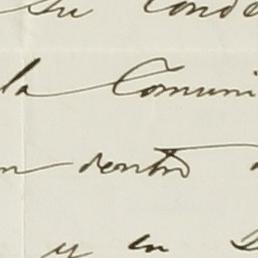 su conde
la Comuni
n dentro
y en